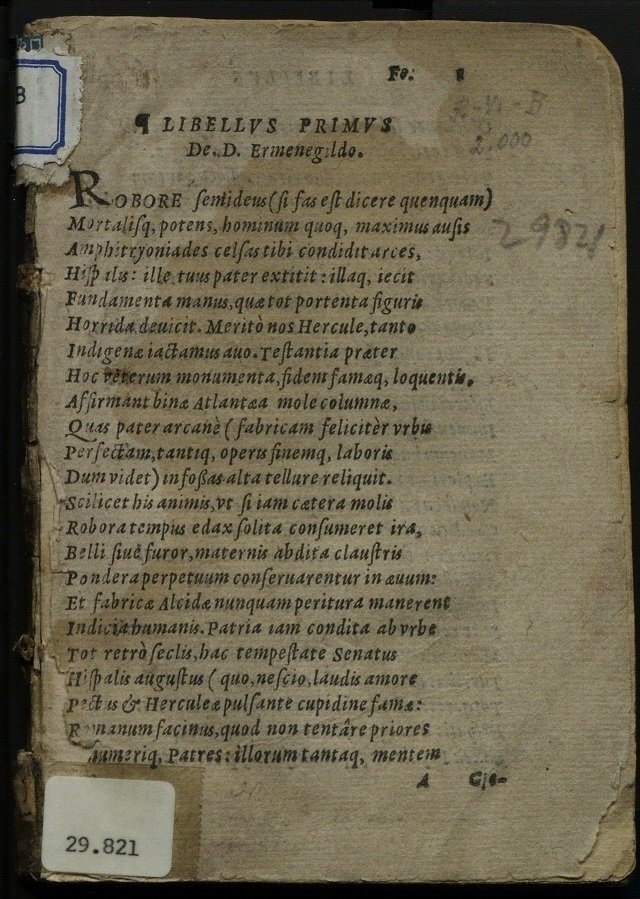 B
Fo. 1
29821
2.000
¶ LIBELLVS PRIMVS
De. D. Ermenegildo.
ROBORE semideus (si fas est dicere quenquam)
Mortalisq, potens, hominum quoq, maximus ausis
Amphitryoniades celsas tibi condidit arces,
Hispalis: ille tuus pater extitit: illaq, iecit
Fundamenta manus, quæ tot portenta figuris
Horrida deuicit. Meritò nos Hercule, tanto
Indigenæ iactamus auo. Testantia præter
Hoc veterum monumenta, fidem famæq, loquentis,
Affirmant binæ Atlantæa mole columnæ,
Quas pater arcanè (fabricam felicitèr vrbis
Perfectam, tantiq, operis finemq, laboris
Dum videt) infossas alta tellure reliquit.
Scilicet his animis, vt si iam cætera molis
Robora tempus edax solita consumeret ira,
Belli siuè furor, maternis abdita claustris
Pondera perpetuum conseruarentur in æuum:
Et fabricæ Alcidæ nunquam peritura manerent
Indicia humanis. Patria iam condita ab vrbe
Tot retrò seclis, hac tempestate Senatus
Hispalis augustus (quo, nescio, laudis amore
Pectus & Herculeæ pulsante cupidine famæ:
Romanum facinus, quod non tentâre priores
Numeriq, Patres: illorum tantaq, mentem
A Glo-
29.821